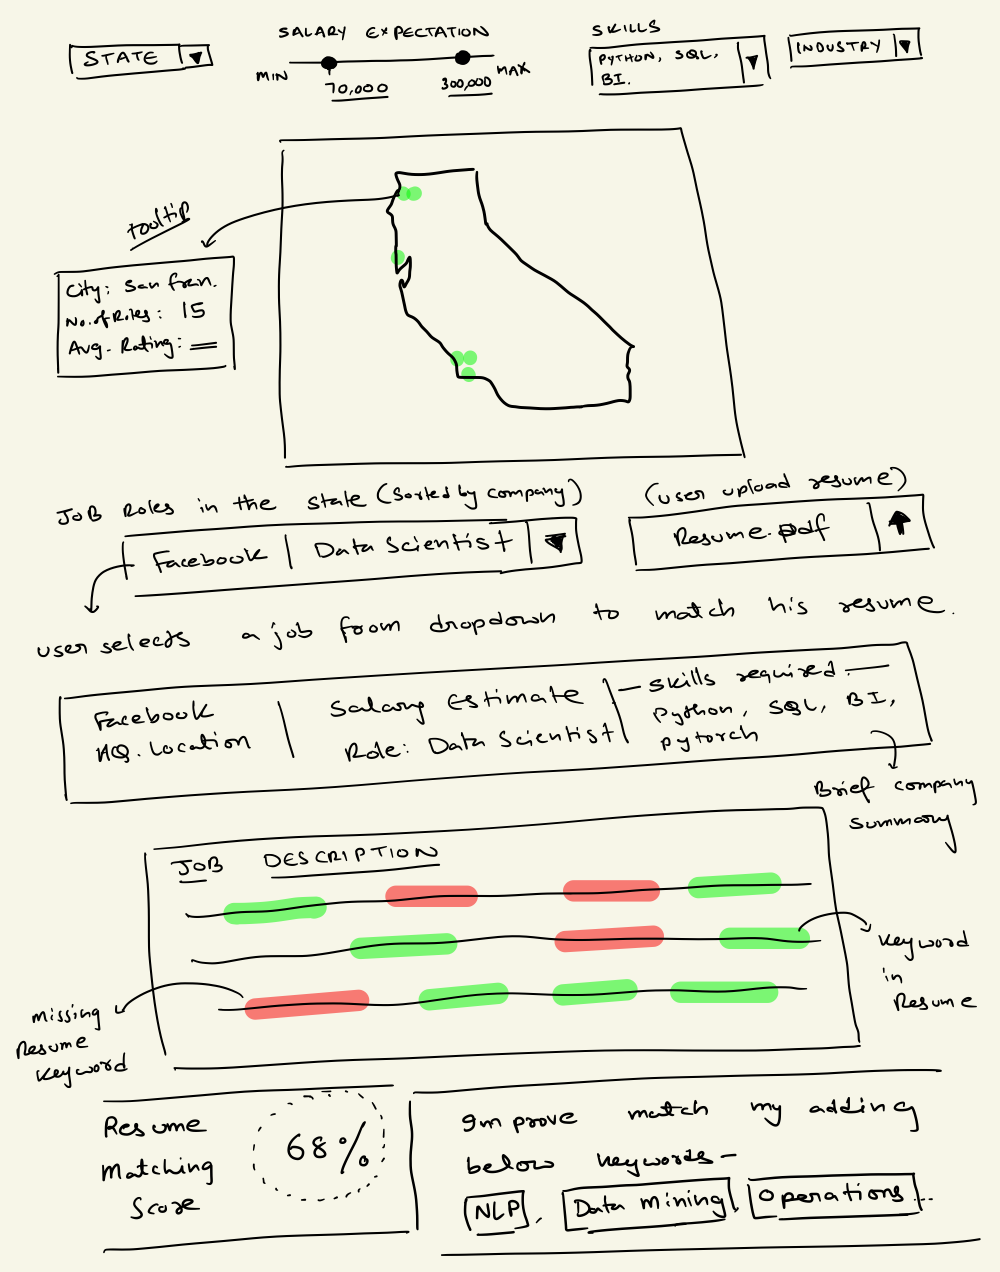 STATE
SALARY EXPECTATION
MIN
70,000
300,000
MAX
SKILLS
PYTHON, SQL,
BI.
INDUSTRY
tooltip
City: San Fran.
No. of Roles: 15
Avg. Rating:
JOB Roles in the state (Sorted by company)
Facebook | Data Scientist
(user upload resume)
Resume.pdf
user selects a job from dropdown to match his resume.
Facebook
HQ. Location
Salary Estimate
Role: Data Scientist
— Skills required —
Python, SQL, BI,
pytorch
Brief company
summary
JOB DESCRIPTION
keyword
in
Resume
Missing
Resume
keyword
Resume
Matching
Score
68%
Improve match my adding
below keywords –
NLP, Data mining, Operations...